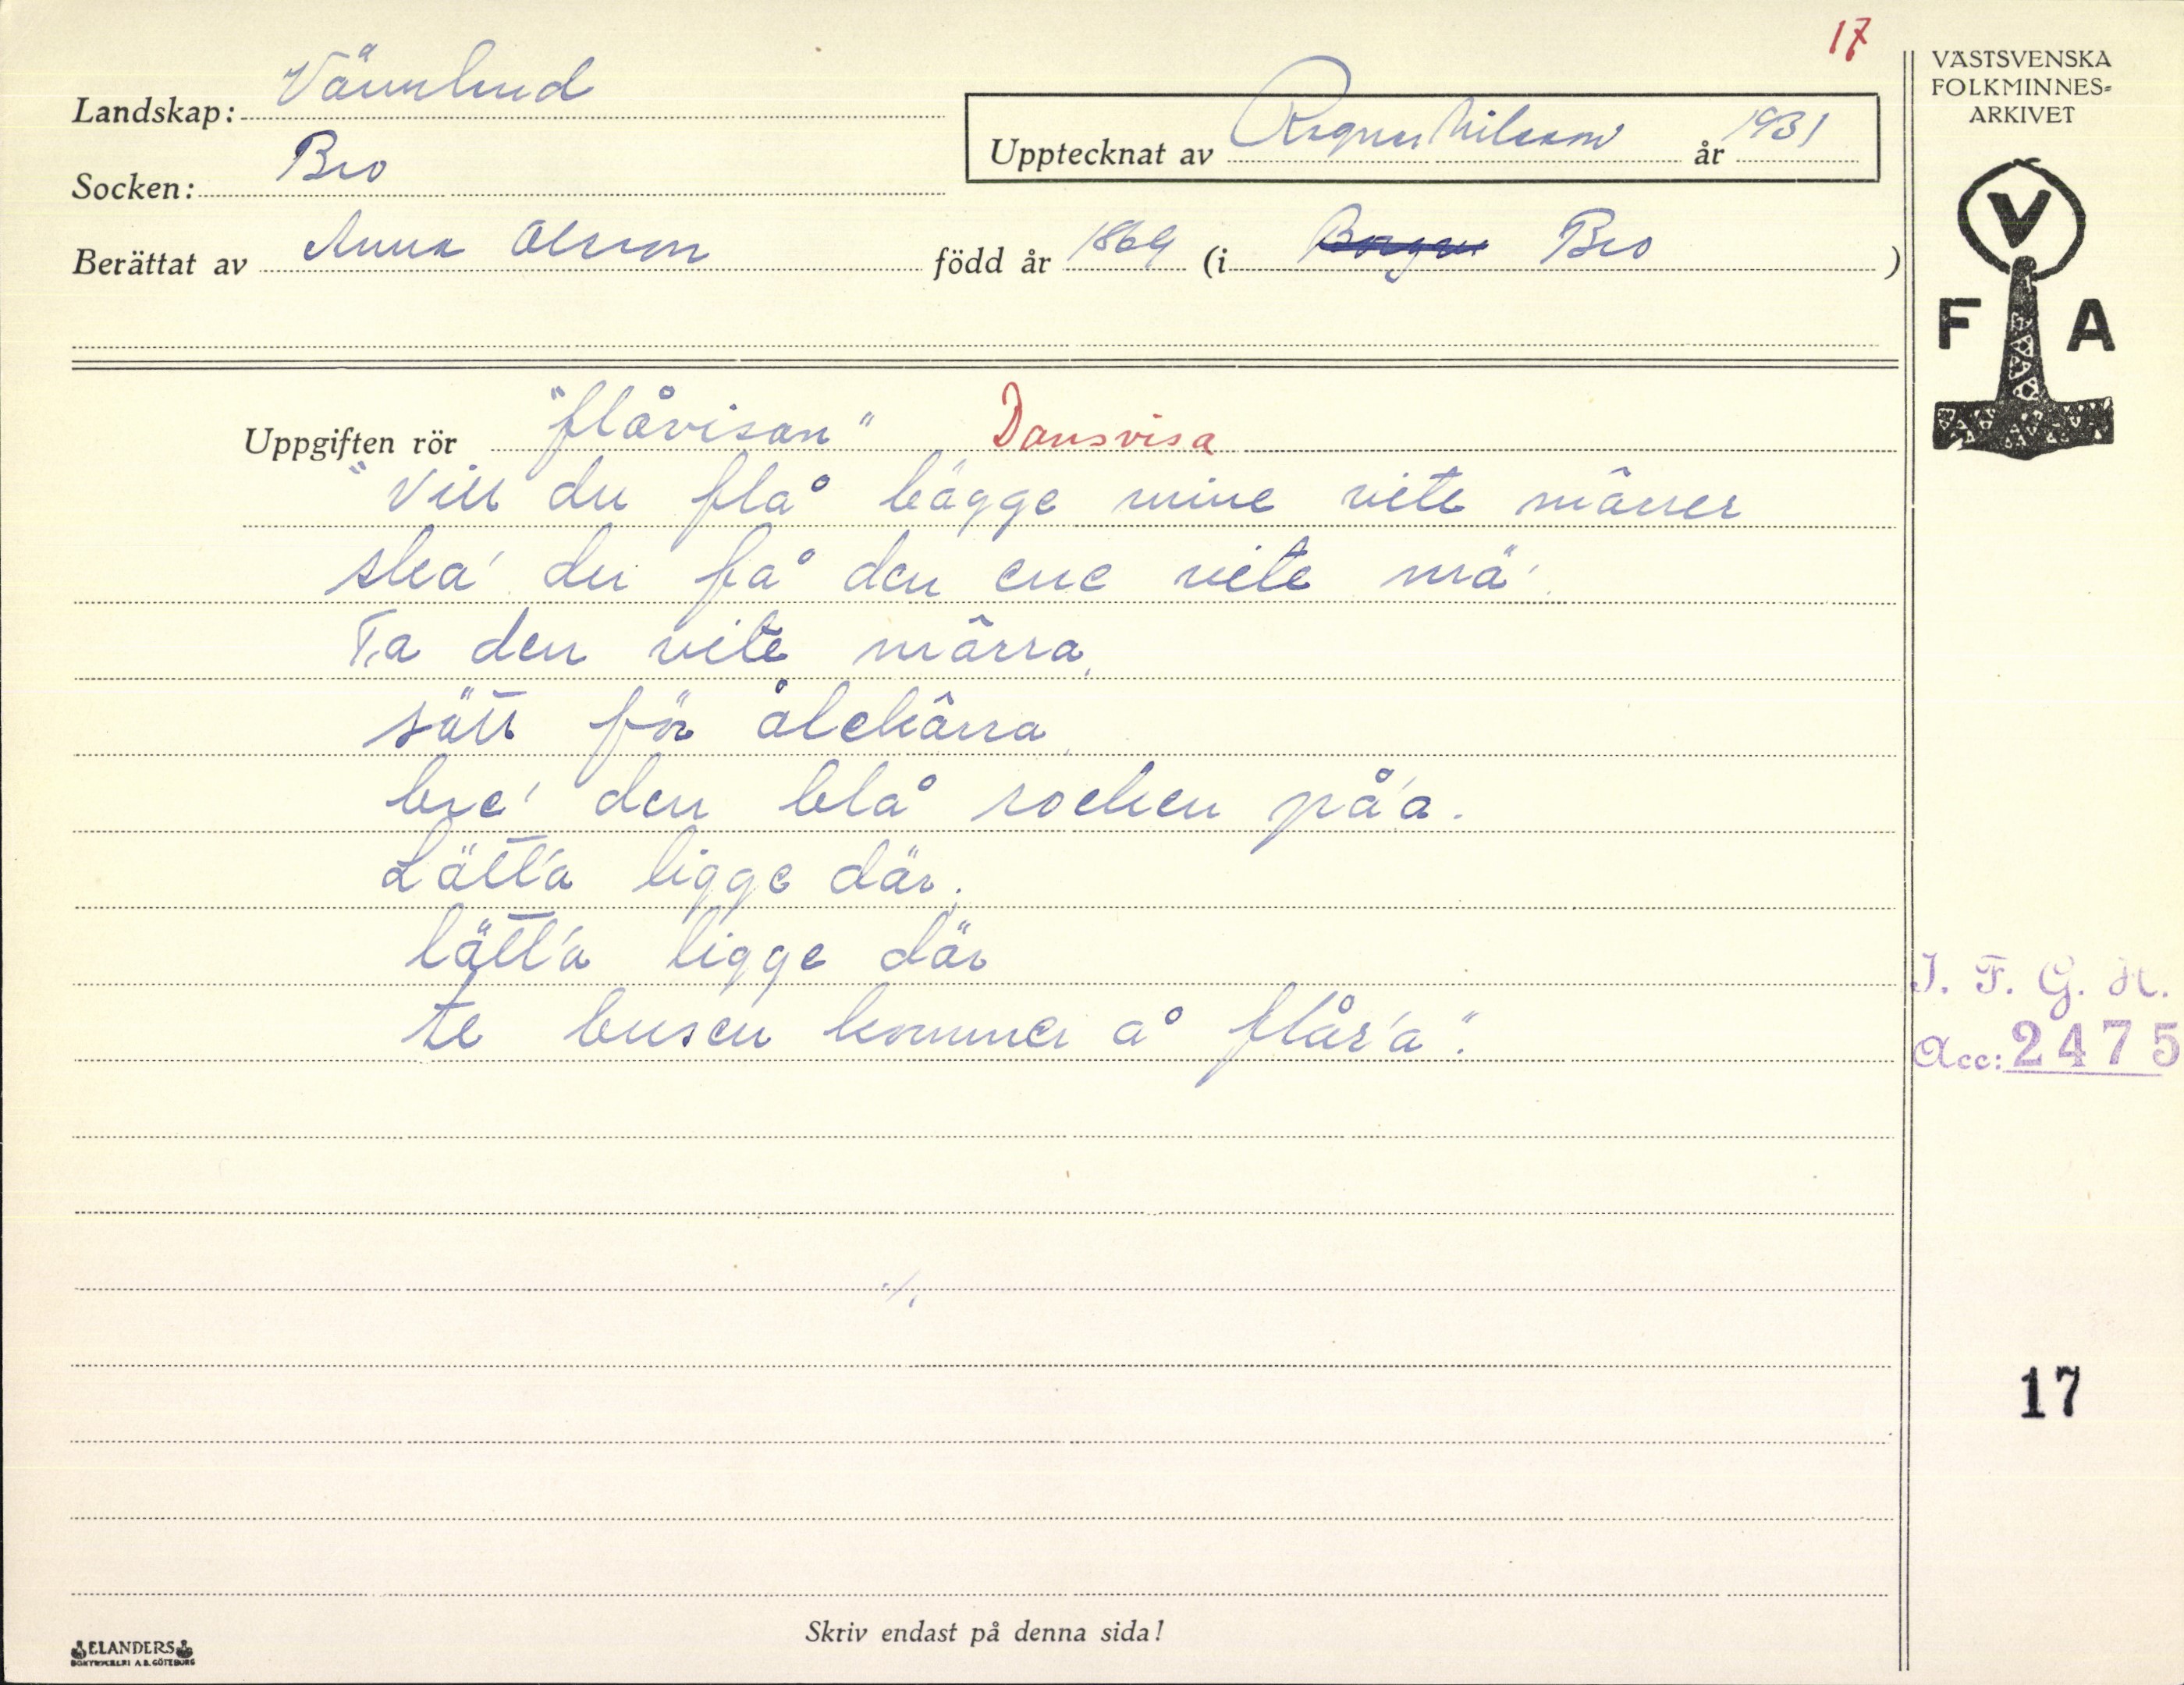 17
Landskap: Värmland
Socken: Bro
Upptecknat av Ragnar Nilsson år 1931
Berättat av Anna Olsson född år 1869 (i Borgvi Bro)
Uppgiften rör "flåvisan" Dansvisa
"Vill du flå bägge mine vite mârrer
ska' du få den ene vite mä'.
Ta den vite mârra,
sätt för ålekârra,
bre' den blå rocken på'a.
Lätt'a ligge där,
lätt'a ligge där
te busen kommer å flår'a".
./.
Skriv endast på denna sida!
ELANDERS
BOKTRYCKERI A.B. GÖTEBORG
VÄSTSVENSKA
FOLKMINNES-
ARKIVET
V
F A
I. F. G. H.
Acc: 2475
17